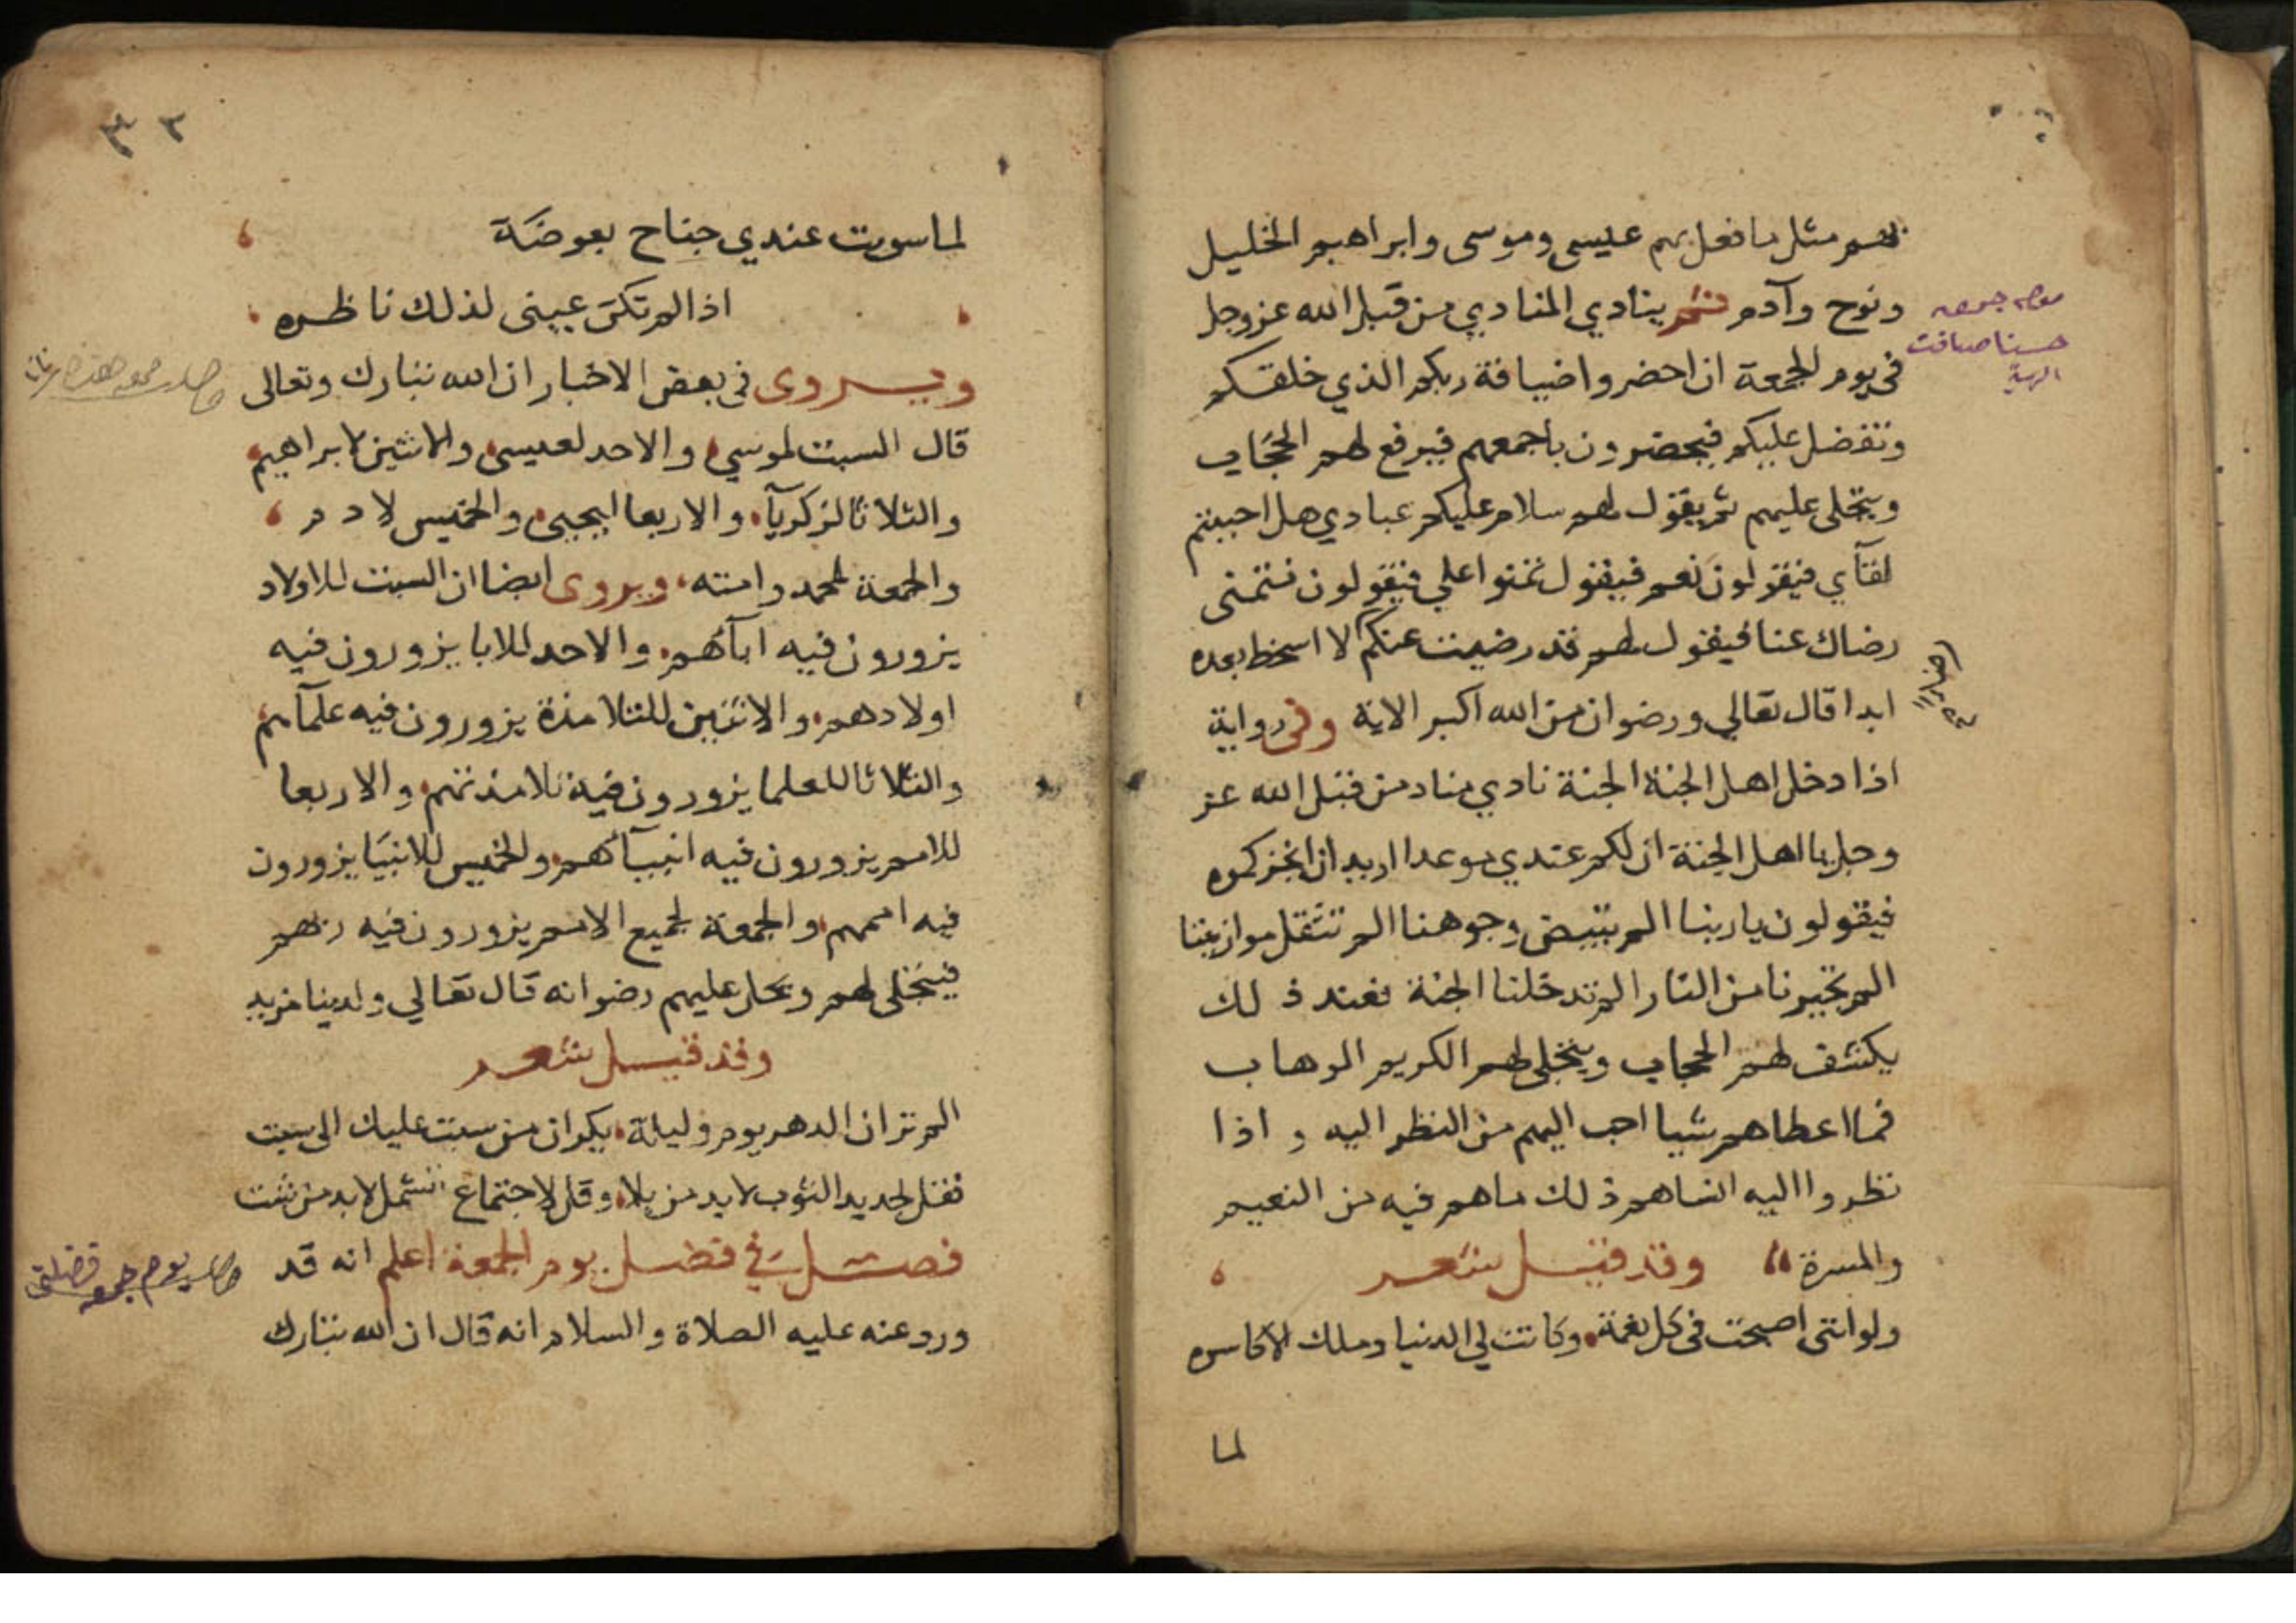 بهم مثل ما فعل بهم عيسى وموسى وابراهيم الخليل
ونوح وآدم ثم ينادي المنادي من قبل الله عز وجل
في يوم الجمعة ان احضروا ضيافة ربكم الذي خلقكم
وتفضل عليكم فيحضرون باجمعهم فيرفع لهم الحجاب
ويتجلى عليهم ثم يقول لهم سلام عليكم عبادي هل احببتم
لقآي فيقولون نعم فيقول تمنوا علي فيقولون نتمنى
رضاك عنا فيقول لهم قد رضيت عنكم لا اسخط بعده
ابدا قال تعالي ورضوان من الله اكبر الاية وفى رواية
اذا دخل اهل الجنة الجنة نادي مناد من قبل الله عز
وجل يا اهل الجنة ان لكم عندي موعدا اريد ان انجزكموه
فيقولون يا ربنا الم تبيض وجوهنا الم تثقل موازيننا
الم تجيرنا من النار الم تدخلنا الجنة فعند ذلك
يكشف لهم الحجاب ويتجلى لهم الكريم الوهاب
فما اعطاهم شيا احب اليهم من النظر اليه و اذا
نظروا اليه انساهم ذلك ما هم فيه من النعيم
والمسرة وقد قيل شعر
ولو اننى اصبحت فى كل نعمة وكانت لي الدنيا وملك الاكاسره
لما
٣٢
لما سويت عندي جناح بعوضة
اذا لم تكن عينى لذلك ناظره
ويروى فى بعض الاخبار ان الله تبارك وتعالى
قال السبت لموسي والاحد لعيسى والاثنين لابراهيم
والثلاثا لزكريآ والاربعا ليحيى والخميس لادم
والجمعة لمحمد وامته ويروى ايضا ان السبت للاولاد
يزورون فيه ابآئهم والاحد للابا يزورون فيه
اولادهم والاثنين للتلامذة يزورون فيه علمآئهم
والثلاثا للعلما يزورون فيه تلامذتهم والاربعا
للامم يزورون فيه انبيآئهم والخميس للانبيا يزورون
فيه اممهم والجمعة لجميع الامم يزورون فيه ربهم
فيتجلى لهم ويحل عليهم رضوانه قال تعالي ولدينا مزيد
وقد قيل شعر
الم تر ان الدهر يوم وليلة يكران من سبت عليك الى سبت
فقل لجديد الثوب لا بد من بلا وقل لاجتماع الشمل لا بد من شت
فصل في فضل يوم الجمعة اعلم انه قد
ورد عنه عليه الصلاة والسلام انه قال ان الله تبارك